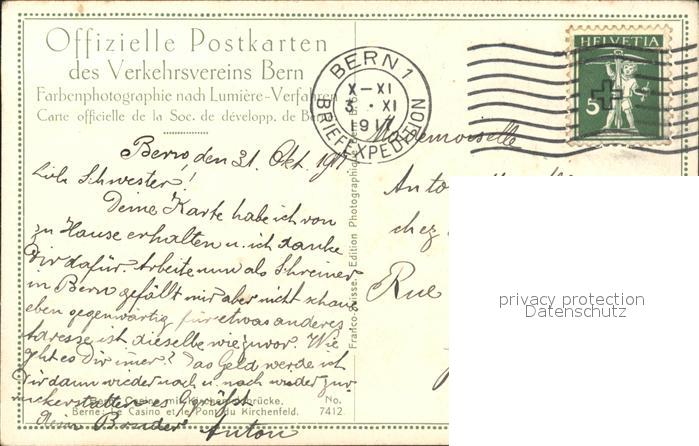 Offizielle Postkarten
des Verkehrsvereins Bern
Farbenphotographie nach Lumière-Verfahren
Carte officielle de la Soc. de développ. de Be
BERN 1
X-XI
3. XI
1917
BRIEFEXPEDITION
HELVETIA
5
Bern den 31. Okt. 1917
Liebe Schwester!
Deine Karte habe ich von
zu Hause erhalten u. ich danke
Dir dafür. Arbeite nun als Schreiner
in Bern gefällt mir aber nicht schaue
eben gegenwärtig für etwas anderes
Adresse ist dieselbe wie zuvor. Wie
geht es Dir immer? Das Geld werde ich
Dir dann wieder nach u. nach wieder zu
rückerstatten es grüsst
Dein Bruder Anton
Casino mit Kirchenfeldbrücke. No.
Berne: Le Casino et le Pont du Kirchenfeld. 7412.
Franco-Suisse, Edition Photographique
Mademoiselle
chez
Rue
privacy protection
Datenschutz